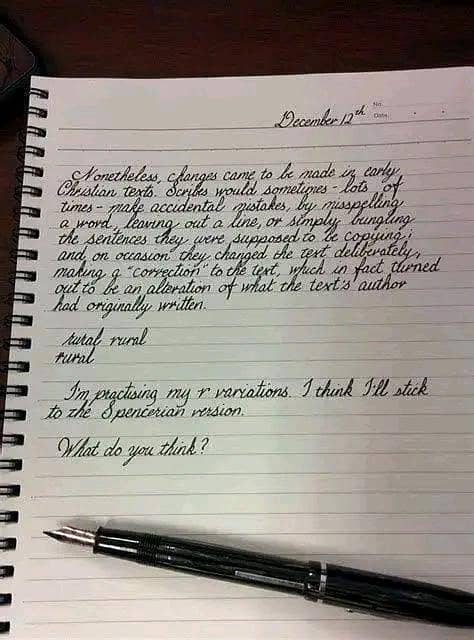 No.
Date.
December 12th
Nonetheless, changes came to be made in early
Christian texts. Scribes would sometimes - lots of
times - make accidental mistakes, by misspelling
a word, leaving out a line, or simply bungling
the sentences they were supposed to be copying;
and, on occasion they changed the text deliberately,
making a "correction" to the text, which in fact turned
out to be an alteration of what the text's author
had originally written.
rural rural
rural
I'm practising my r variations. I think I'll stick
to the Spencerian version.
What do you think?